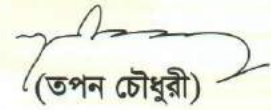 (তপন চৌধুরী)